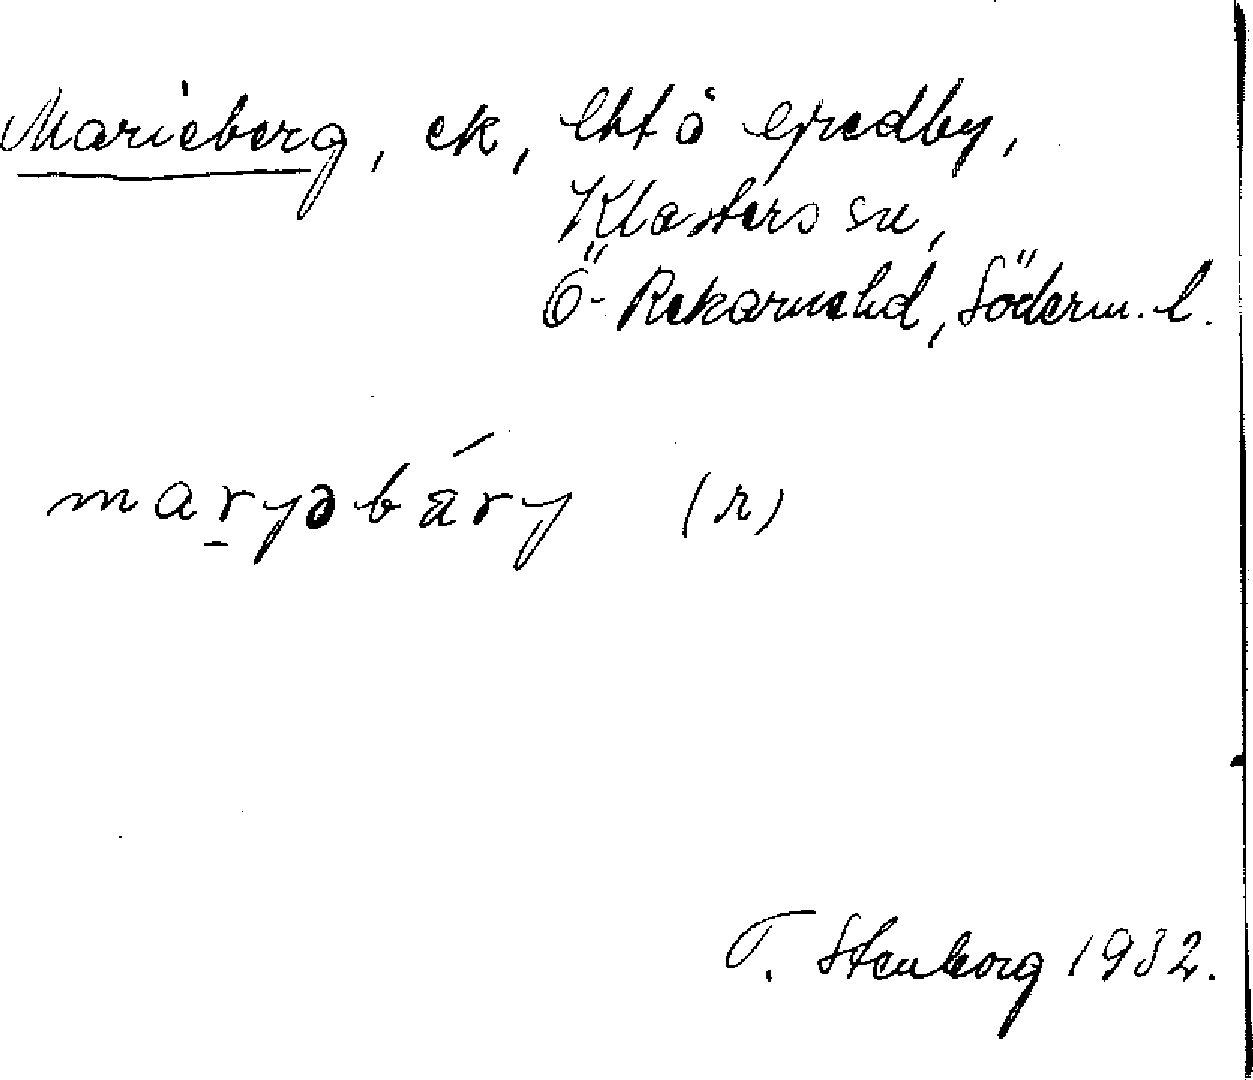 Marieberg, ek, lht å Gredby,
Klosters sn,
Ö. Rekarnehd, Söderm. l.
mar̲yəbáry (r)
T. Stenborg 1932.